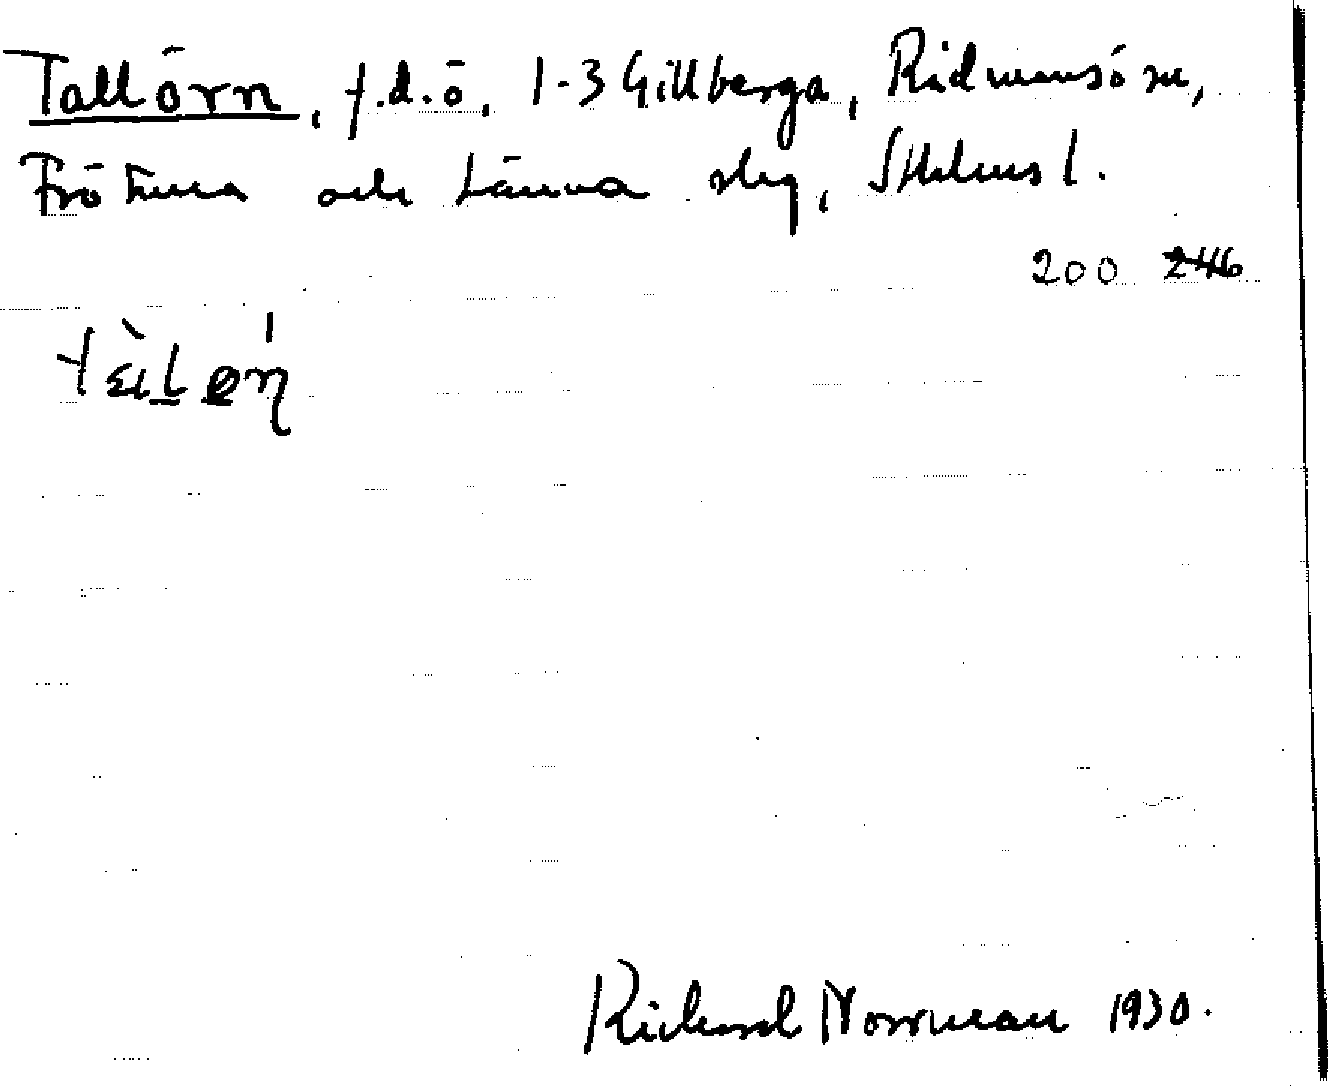 Tallörn, f.d. ö, 1-3 Gillberga, Rådmansö sn,
Frötuna och Länna slg, Sthlms l.
200 246
Richard Norrman 1930.